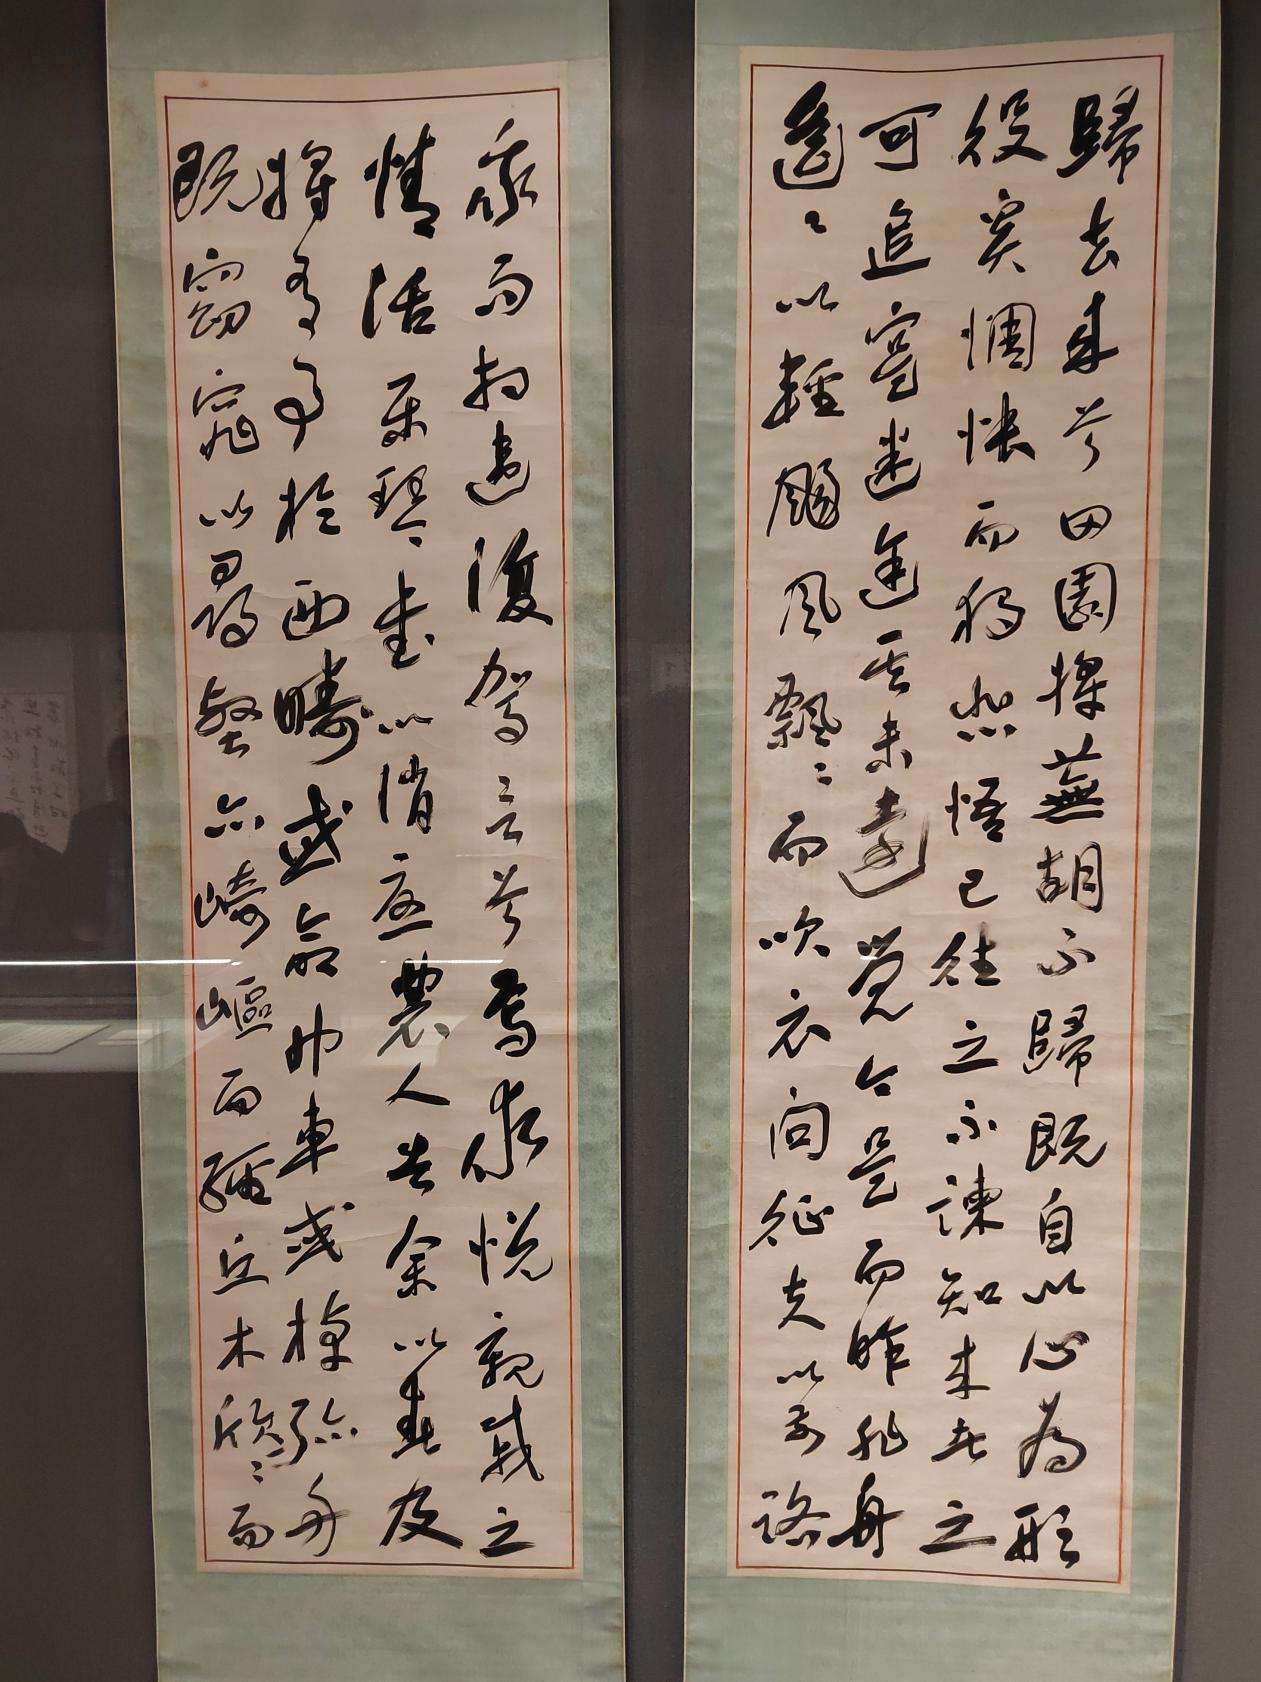 歸去来兮田園将蕪胡不歸既自以心為形
役奚惆悵而獨悲悟已往之不諫知来者之
可追寔迷途其未遠覺今是而昨非舟
遙〻以輕颺風飄〻而吹衣問征夫以前路
我而相遺復駕言兮焉求悦親戚之
情話樂琴書以消憂農人告余以春及
将有事於西疇或命巾車或棹孤舟
既窈窕以尋壑亦崎嶇而經丘木欣〻而